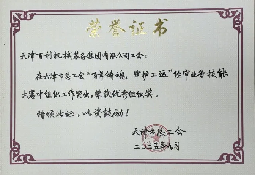 荣誉证书
天津百利机械装备集团有限公司工会:
在天津市总工会"百年铸魂、
大赛中组织工作突出,荣获优秀组织奖。
特颁此证,以资鼓励!
天津市总工会